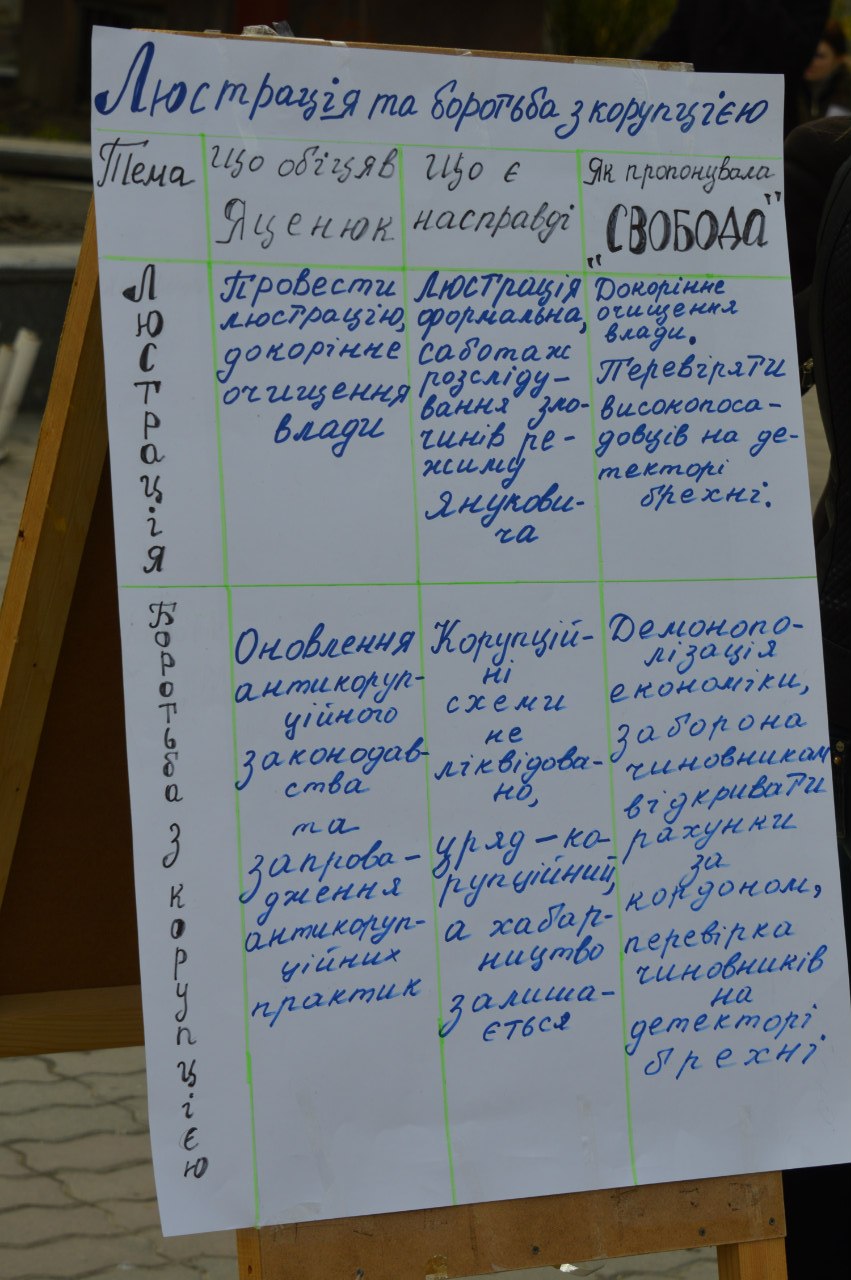 Люстрація та боротьба з корупцією
Тема
Що обіцяв
Яценюк
Що є
насправді
Як пропонувала
"СВОБОДА"
Люстрація
Провести
люстрацію,
докорінне
очищення
влади
Люстрація
формальна,
саботаж
розсліду-
вання зло-
чинів ре-
жиму
Янукови-
ча
Докорінне
очищення
влади.
Перевіряти
високопоса-
довців на де-
текторі
брехні.
Боротьба з корупцією
Оновлення
антикоруп-
ційного
законодав-
ства
та
запрова-
дження
антикоруп-
ційних
практик
Корупцій-
ні
схеми
не
ліквідова-
но,
уряд-ко-
рупційний,
а хабар-
ництво
залиша-
ється
Демонопо-
лізація
економіки,
заборона
чиновникам
відкривати
рахунки
за
кордоном,
перевірка
чиновників
на
детекторі
брехні